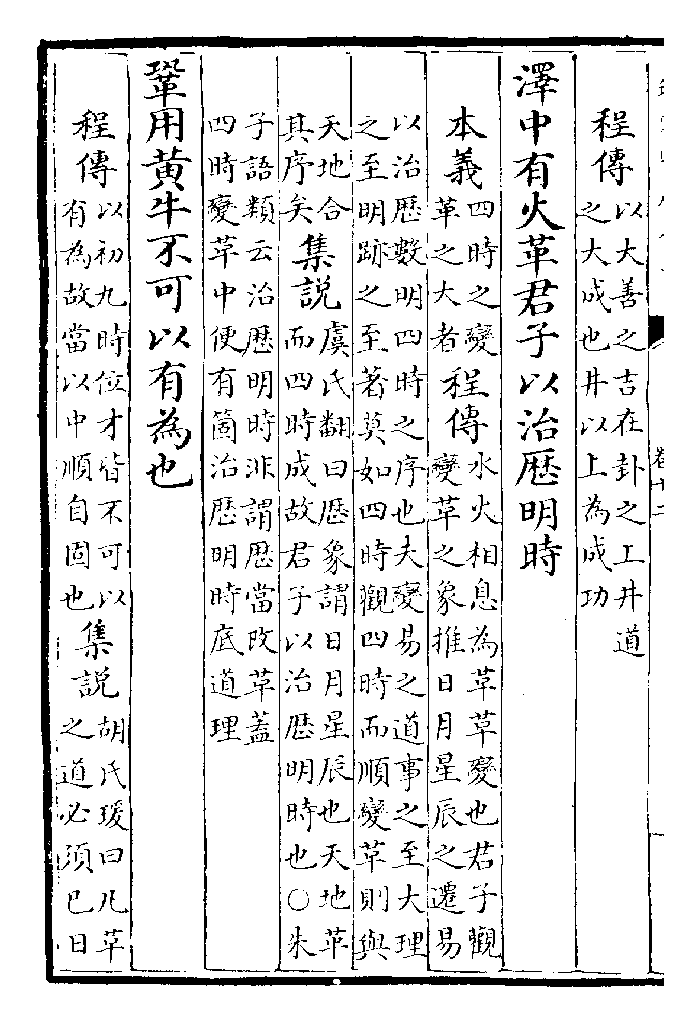 卷十二
程傳
以大善之吉在卦之上井道
之大成也井以上為成功
澤中有火革君子以治厯明時
本義
四時之變
革之大者
程傳
水火相息為革革變也君子觀
變革之象推日月星辰之遷易
以治厯數明四時之序也夫變易之道事之至大理
之至明跡之至著莫如四時觀四時而順變革則與
天地合
其序矣
集說
虞氏翻曰厯象謂日月星辰也天地革
而四時成故君子以治厯明時也○朱
子語類云治厯明時非謂厯當改革蓋
四時變革中便有箇治厯明時底道理
鞏用黄牛不可以有為也
程傳
以初九時位才皆不可以
有為故當以中順自固也
集說
胡氏瑗曰凡革
之道必須已日